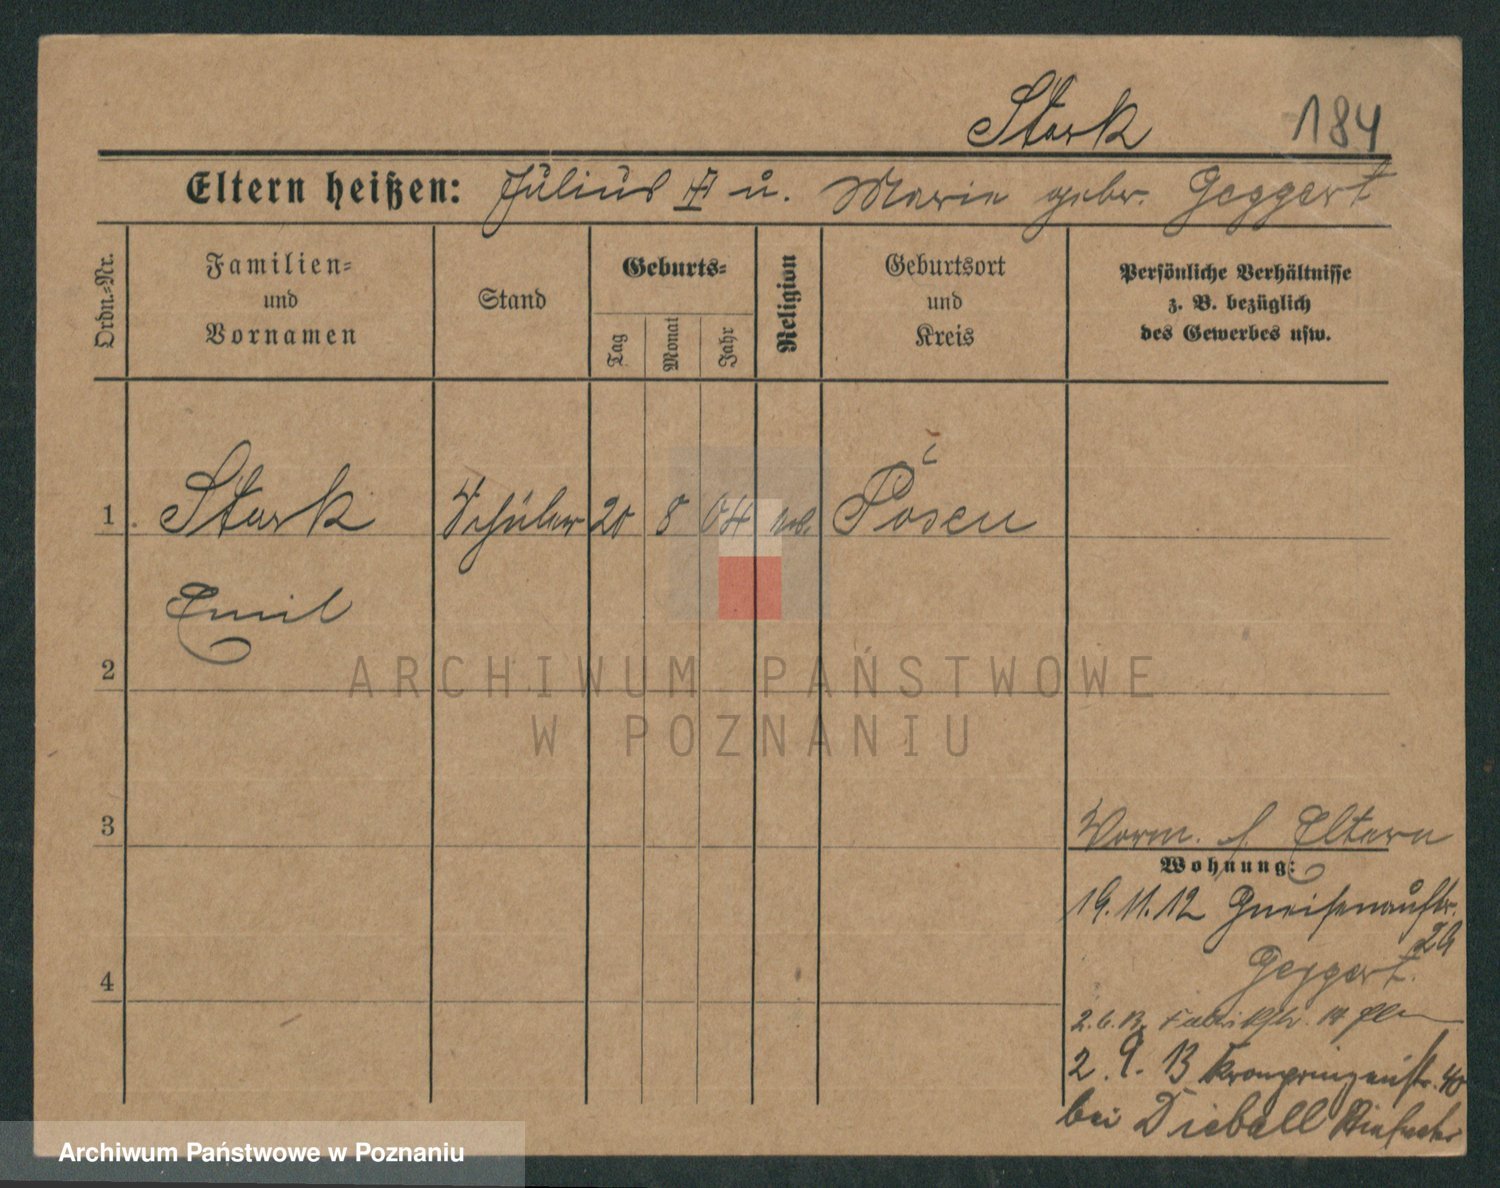 Stark 184
Eltern heißen: Julius u. Marie gebr. Geggert
Ordn.=Nr.
Familien=
und
Vornamen
Stand
Geburts=
Tag
Monat
Jahr
Religion
Geburtsort
und
Kreis
Persönliche Verhältnisse
z. B. bezüglich
des Gewerbes usw.
1 Stark Schüler 20 8 04 Posen
Emil
2
3
4
Vorm. s. Eltern
Wohnung:
19.11.12 Gneisenaustr.
Geggert.
2.6.13 Fabrikstr.
2.9.13 Kronprinzenstr. 40
bei Dieball
ARCHIWUM PAŃSTWOWE
W POZNANIU
Archiwum Państwowe w Poznaniu